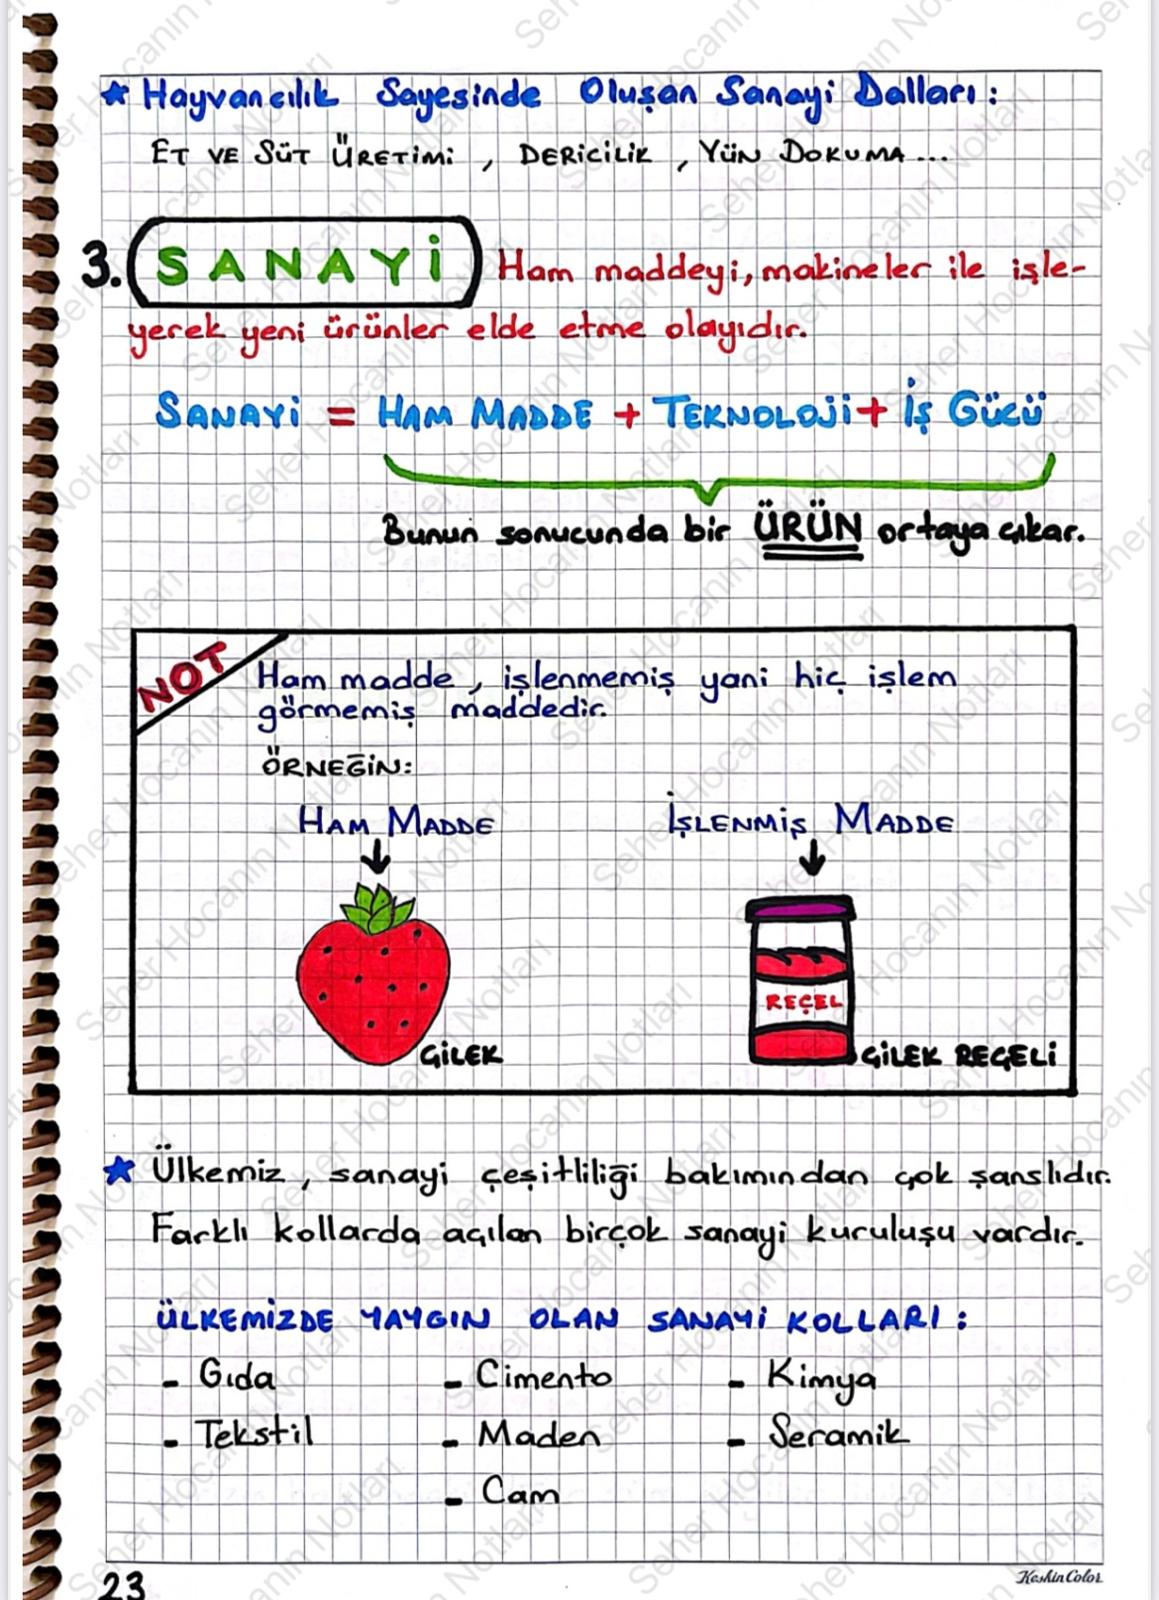 ★ Hayvancılık Sayesinde Oluşan Sanayi Dalları:
ET VE SÜT ÜRETİMİ, DERİCİLİK, YÜN DOKUMA...
3. SANAYİ Ham maddeyi, makineler ile işle-
yerek yeni ürünler elde etme olayıdır.
SANAYİ = HAM MADDE + TEKNOLOJİ + İŞ GÜCÜ
Bunun sonucunda bir ÜRÜN ortaya çıkar.
NOT
Ham madde, işlenmemiş yani hiç işlem
görmemiş maddedir.
ÖRNEĞİN:
HAM MADDE İŞLENMİŞ MADDE
REÇEL
ÇİLEK ÇİLEK REÇELİ
★ Ülkemiz, sanayi çeşitliliği bakımından çok şanslıdır.
Farklı kollarda açılan birçok sanayi kuruluşu vardır.
ÜLKEMİZDE YAYGIN OLAN SANAYİ KOLLARI:
- Gıda - Cimento - Kimya
- Tekstil - Maden - Seramik
- Cam
23 KeskinColor
Seher Hocanın Notları